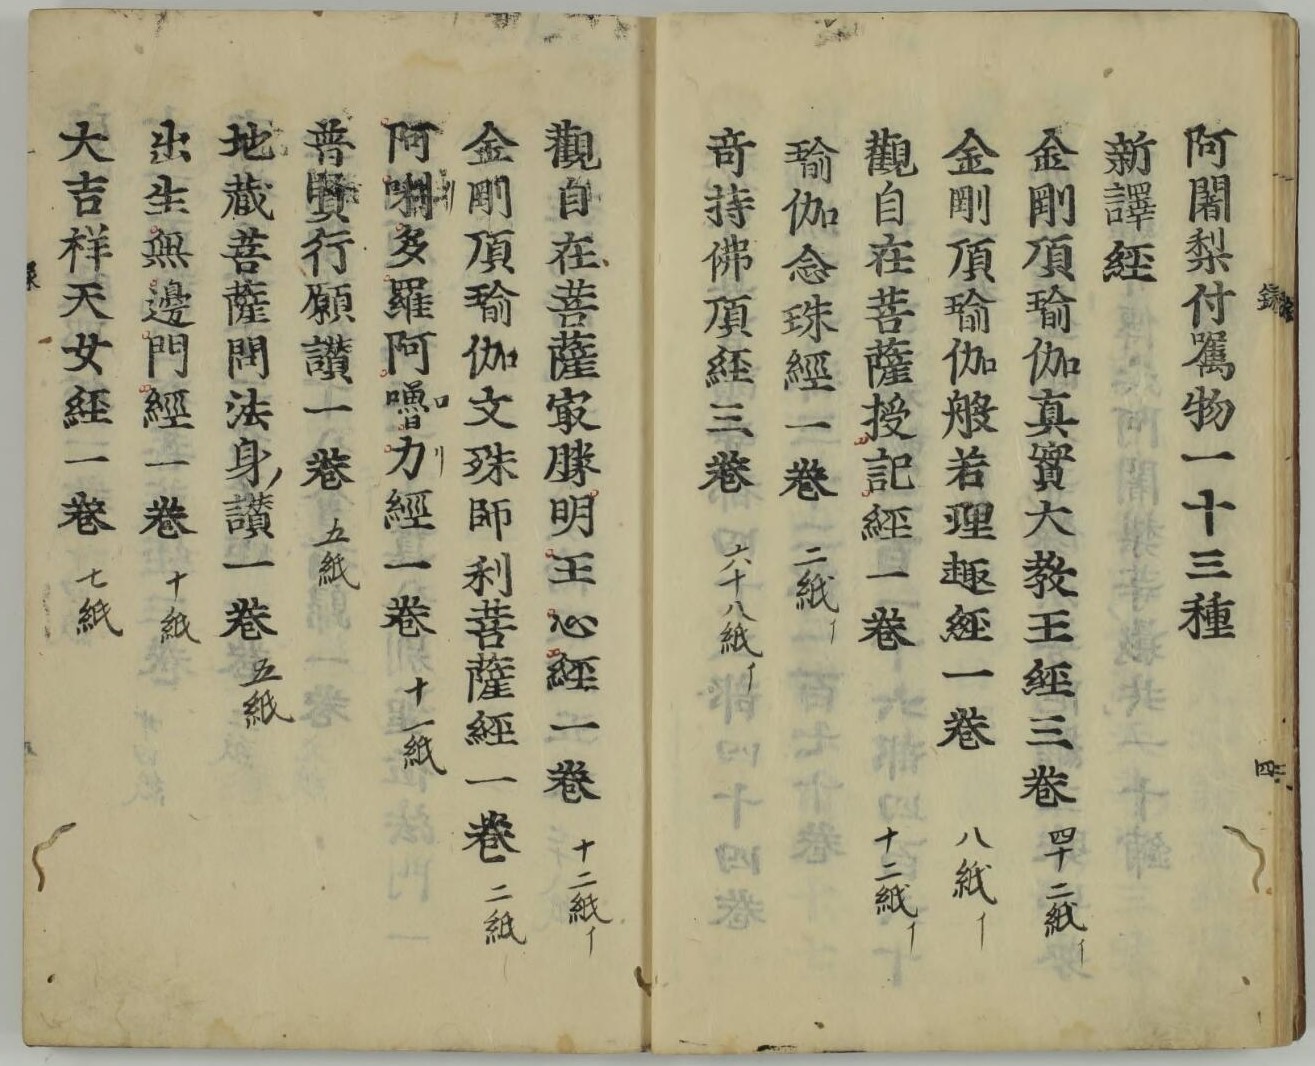 阿闍梨付囑物一十三種
新譯經
金剛頂瑜伽真實大教王經三卷 四十二紙
金剛頂瑜伽般若理趣經一卷 八紙
觀自在菩薩授記經一卷 十二紙
瑜伽念珠經一卷 二紙
奇持佛頂經三卷 六十八紙
觀自在菩薩㝡勝明王心經一卷 十二紙
金剛頂瑜伽文殊師利菩薩經一卷 二紙
阿唎多羅阿嚕力經一卷 十一紙
普賢行願讚一卷 五紙
地藏菩薩問法身讃一卷 五紙
出生無邊門經一卷 十紙
大吉祥天女經一卷 七紙